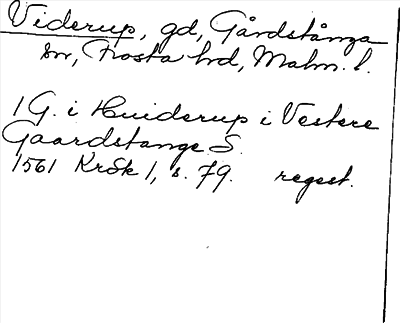 Viderup, gd, Gårdstånga
sn, Frosta hd, Malm. l.
1 G. i Huiderup i Vestere
Gaardstange S.
1561 KrSk 1, s. 79. regest.